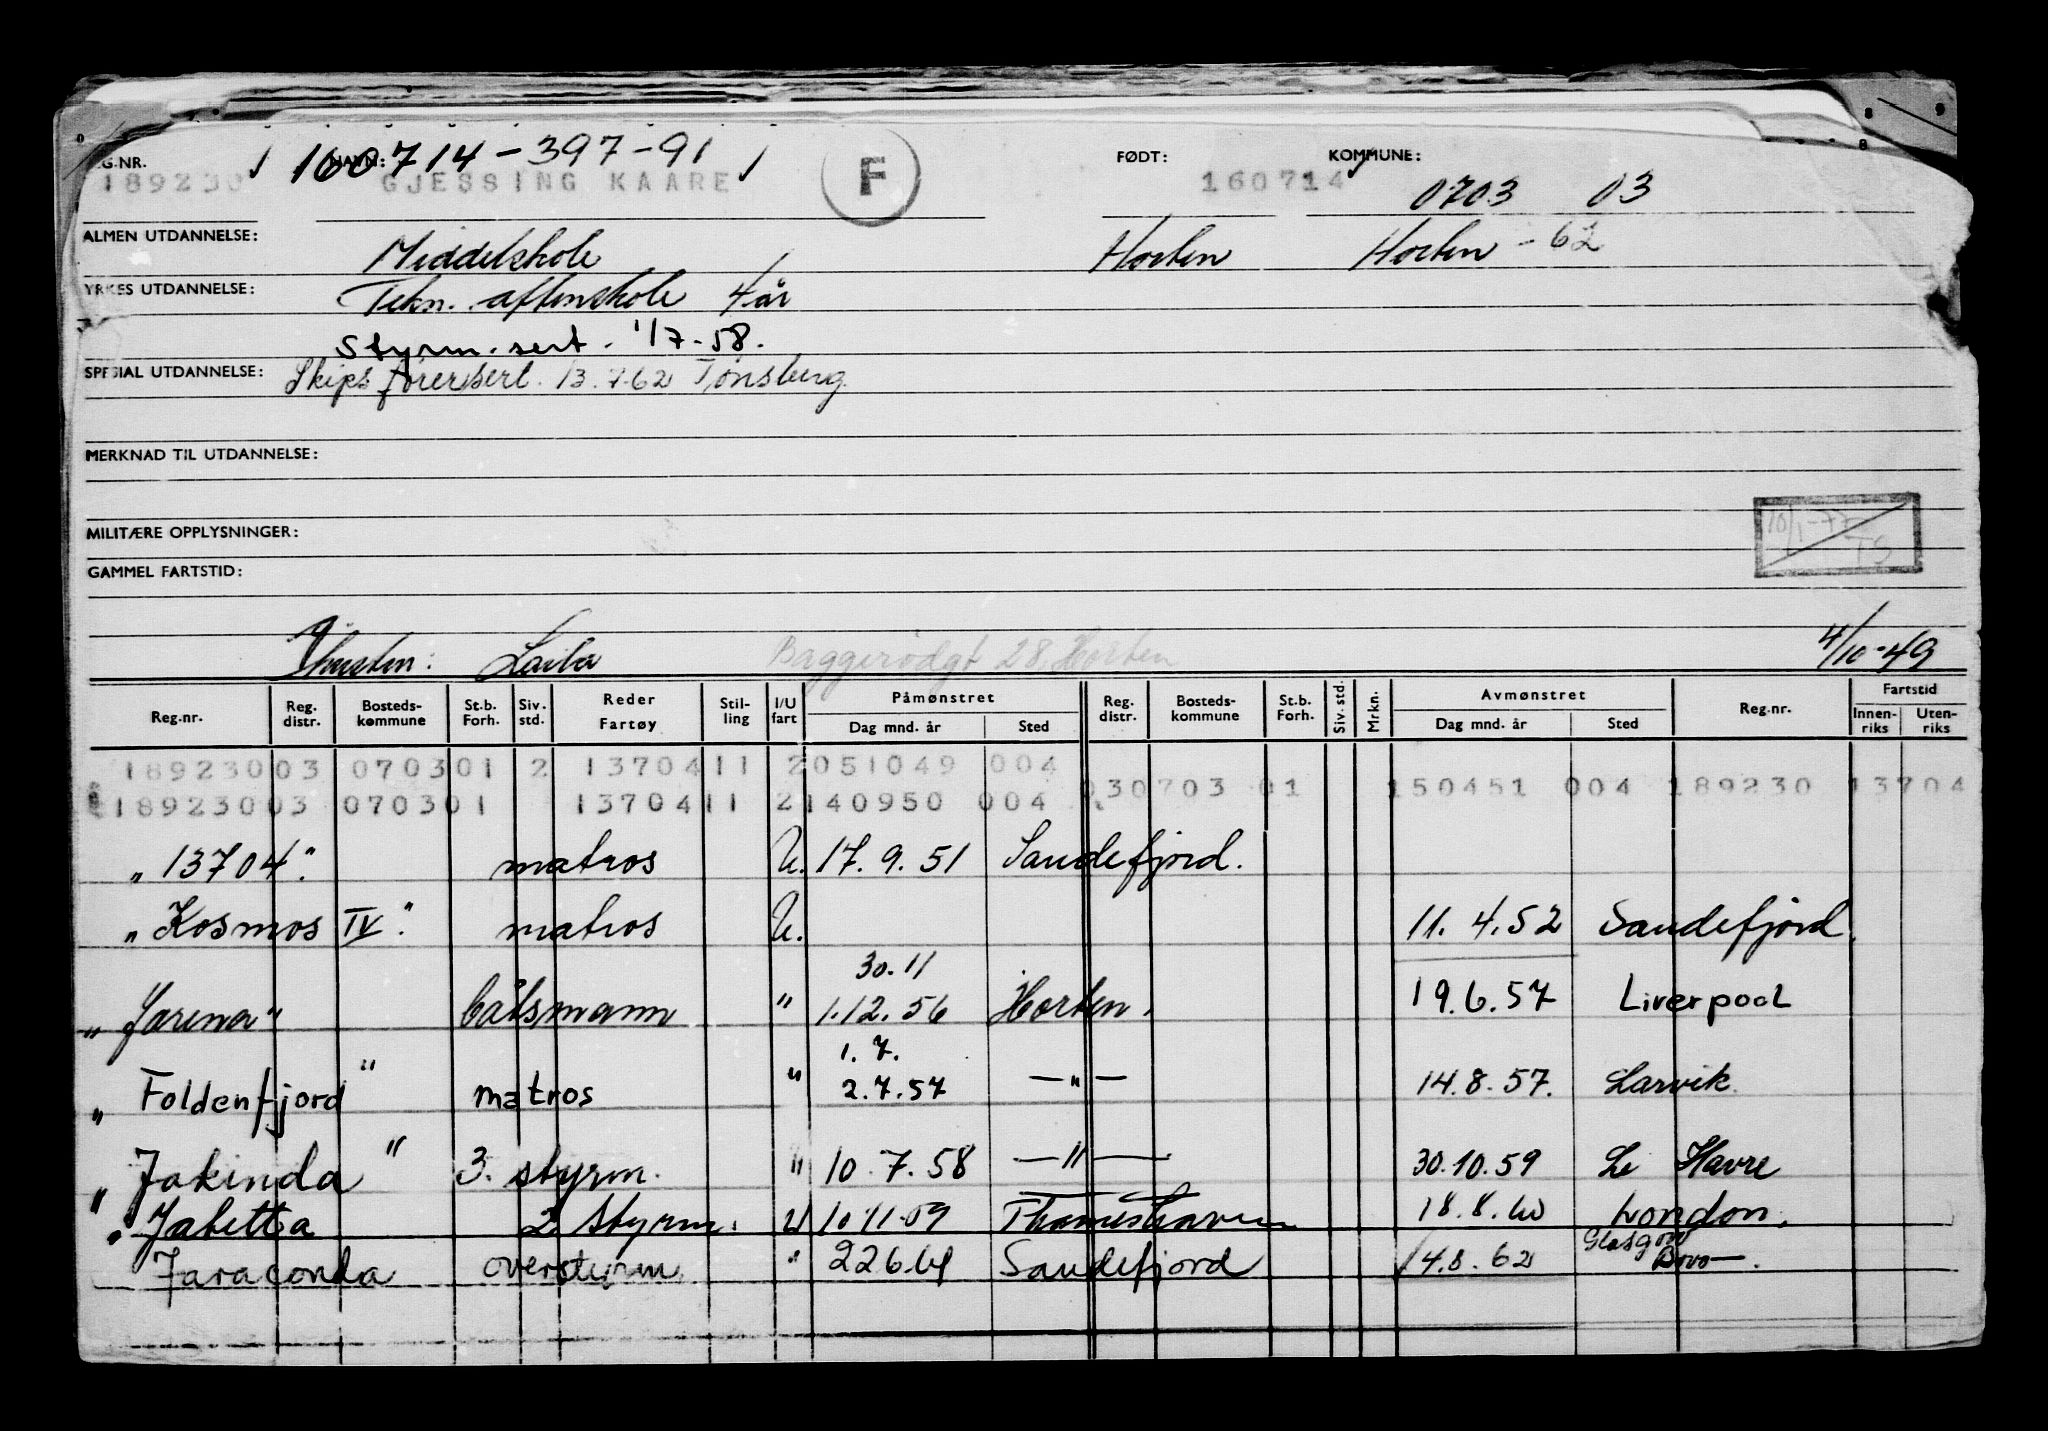 REG.NR. NAVN: 160714-397-91 F FØDT: KOMMUNE:
189230 GJESSING KAARE 160714 0703 03
ALMEN UTDANNELSE: Middelskole Horten Horten - 62
YRKES UTDANNELSE: Tekn. aftenskole 4 år
Styrm. sert. 1/7-58.
SPESIAL UTDANNELSE: Skipsførersert. 13.7.62 Tønsberg
MERKNAD TIL UTDANNELSE:
MILITÆRE OPPLYSNINGER:
10/1-77 TS
GAMMEL FARTSTID:
Hustru: Laila Baggerødgt 28, Horten 4/10-49
Reg.nr. Reg. distr. Bosteds-kommune St.b. Forh. Siv. std. Reder Fartøy Stil-ling I/U fart Påmønstret Dag mnd. år Sted Reg. distr. Bosteds-kommune St.b. Forh. Siv. std. Mrkn. Avmønstret Dag mnd. år Sted Reg.nr. Fartstid Innen-riks Uten-riks
18923003 070301 2 1370411 2051049 004
18923003 070301 1370411 2140950 004 030703 01 150451 004 189230 13704
"13704" matros U. 17.9.51 Sandefjord.
"Kosmos IV." matros U. 11.4.52 Sandefjord.
30.11
"Jarena" båtsmann " 1.12.56 Horten. 19.6.57 Liverpool
1.7.
"Foldenfjord" matros " 2.7.57 —"— 14.8.57. Larvik.
"Jakinda" 3. styrm. " 10.7.58 —"— 30.10.59 Le Havre
"Jabetta 2. styrm. U 10 11 59 Thameshaven 18.8.60 London.
Jaraconda overstyrm " 22661 Sandefjord 14.8.62 Glasgow